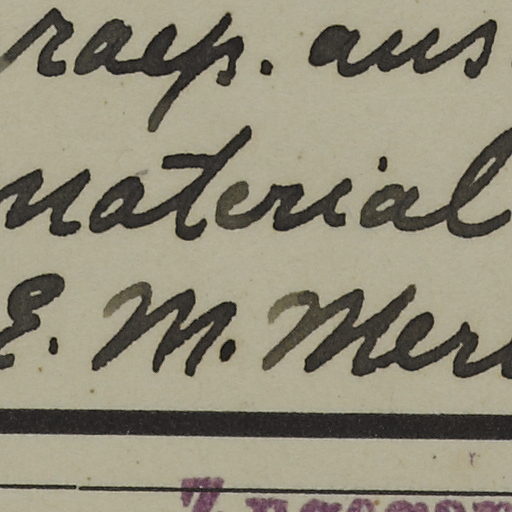 raep. aus.
material
E. M. Mer